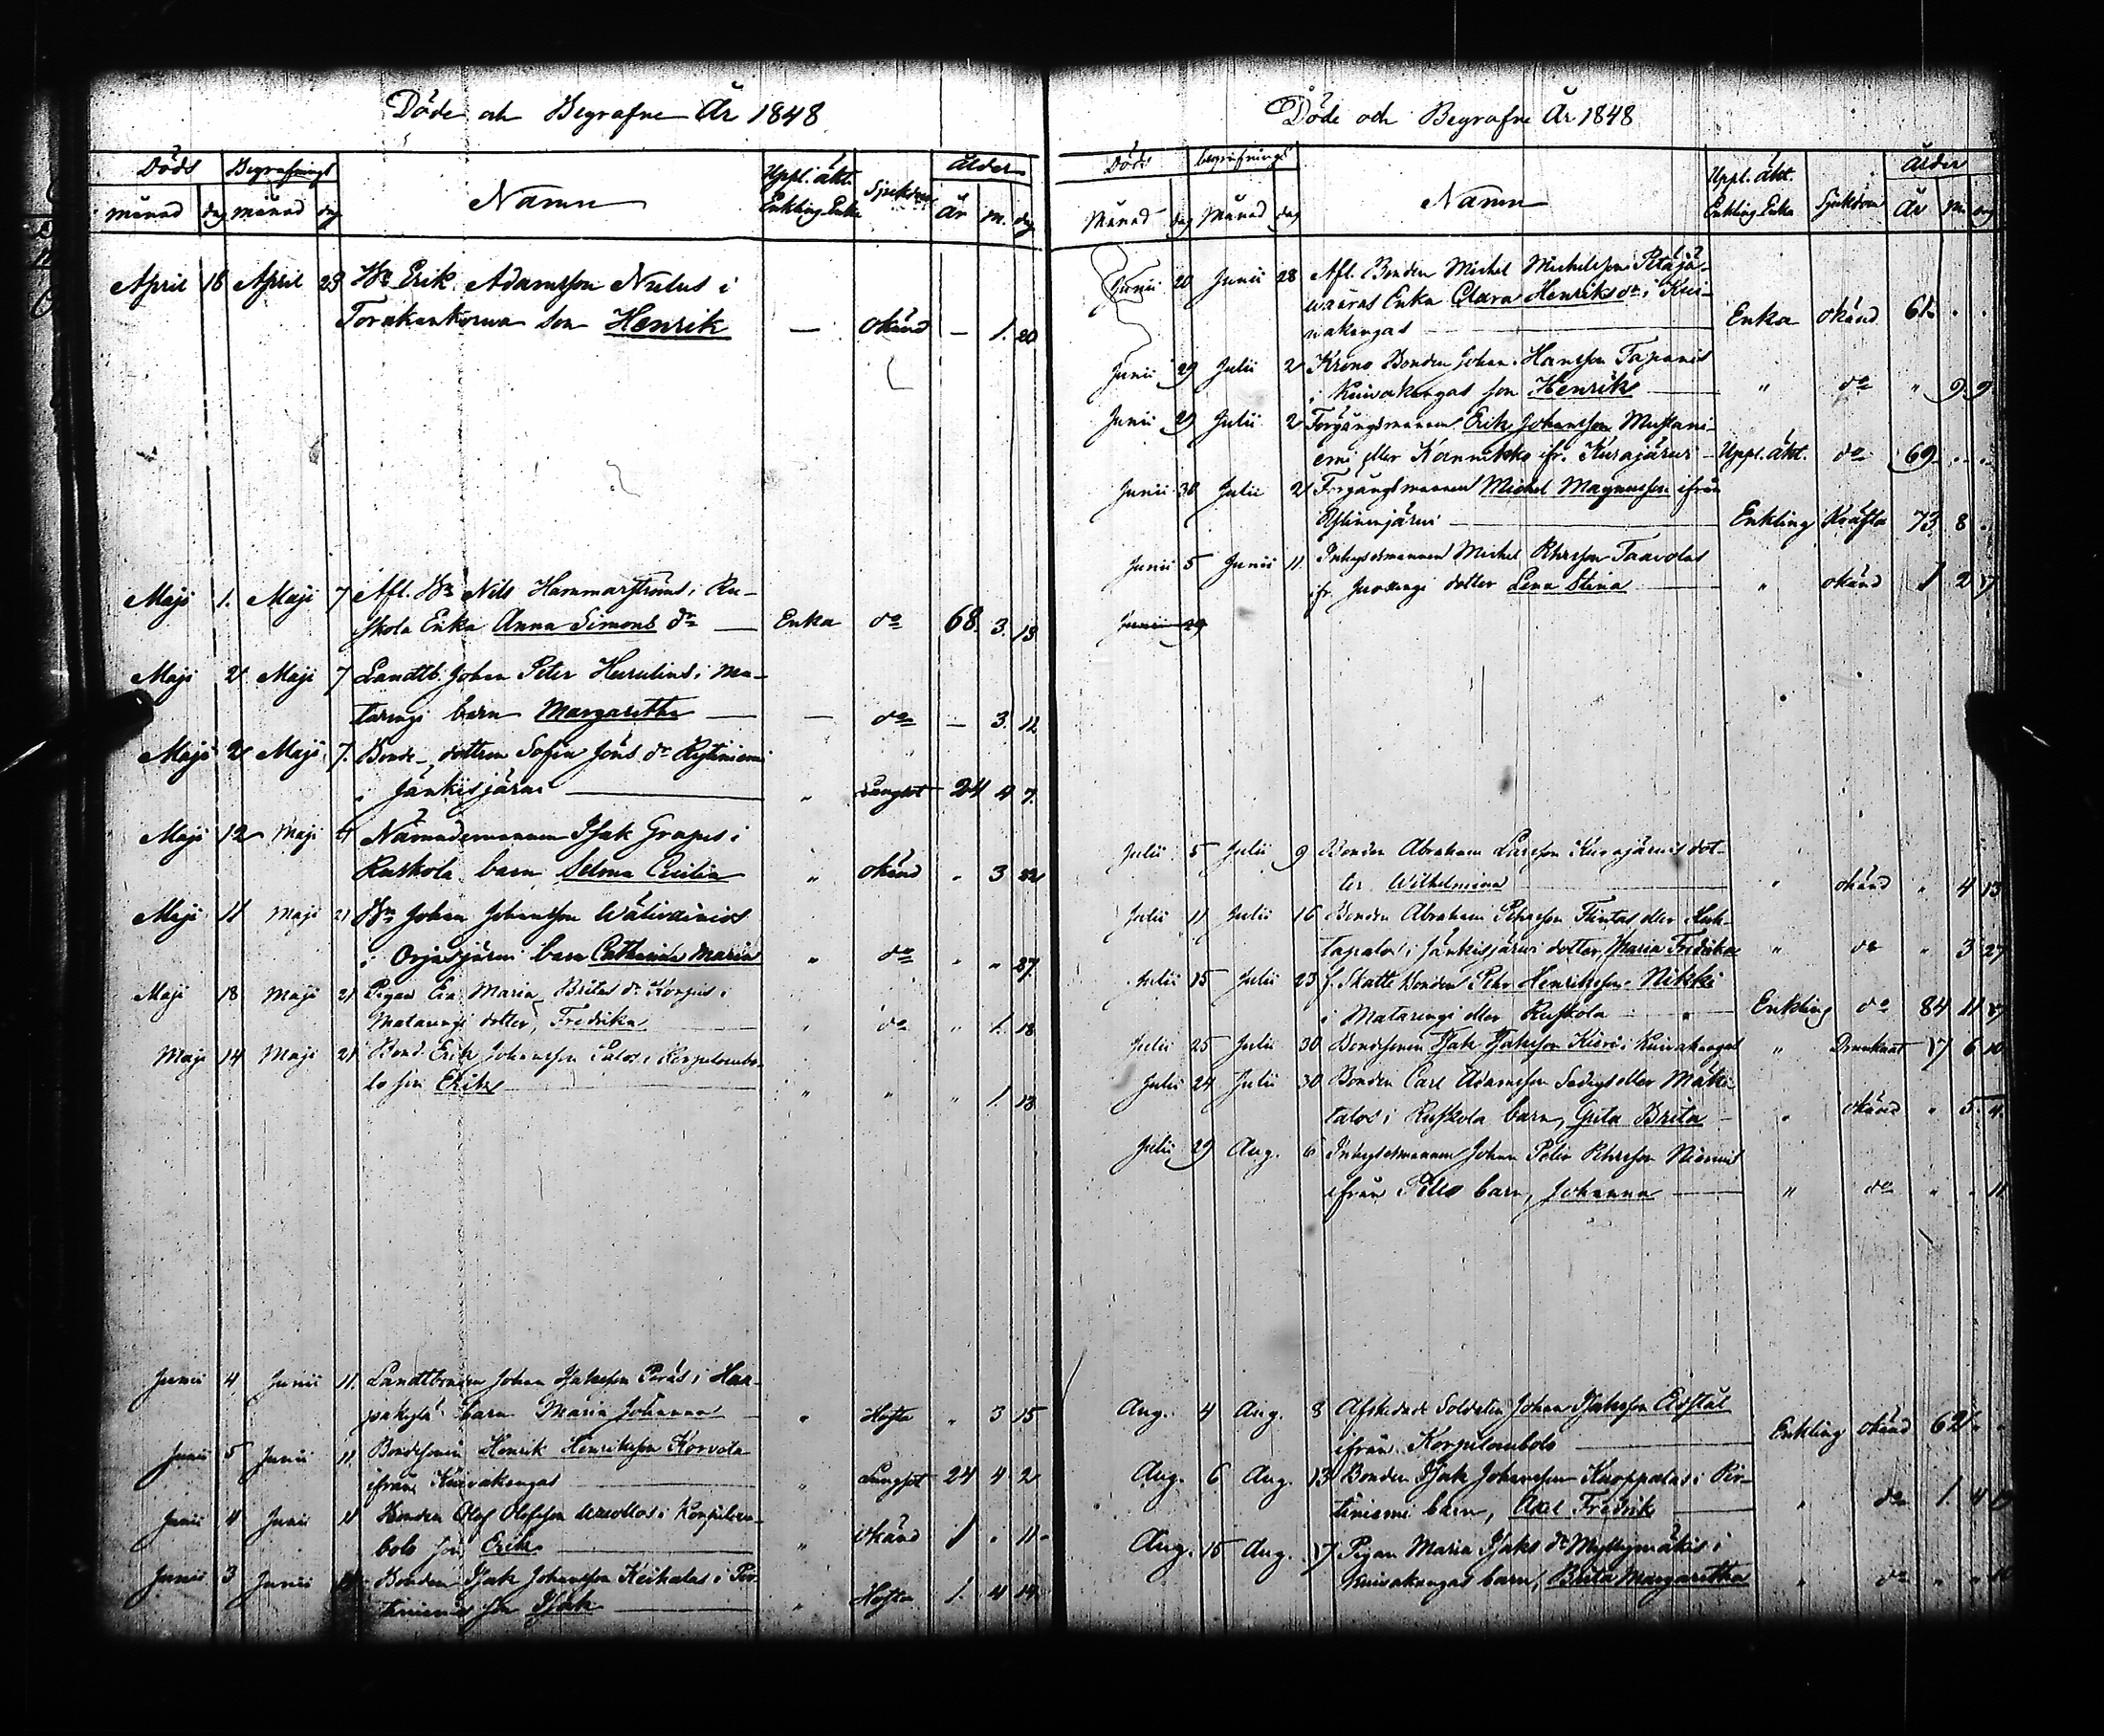 Döde och Begrafne År 1848
Döds Begrafnings Namn Uppl. äkt. Enkling Enka Sjukdom Ålder
månad dag månad dag År m. dag
April 18 April 23 Erik Adamsson i
son Henrik — okänd — 1. 20
Maji 1. Maji 7 Afl. Nils Hammarströms i Ru-
skola Enka Anna Simons dr — Enka do 68. 3. 13
Maji 2 Maji 7 Landtb. Johan Peter i Ma-
tarengi barn Margaretha — — do — 3. 12
Maji 2 Maji 7. Bonde-dottren Sofia Jöns dr
i Jänkisjärvi — " Lungsot 24 4 7.
Maji 12 Maji 21 Nämndemannen Isak Grapes i
Ruskola barn Selma Cecilia " okänd " 3 22
Maji 11 Maji 21 Johan Johansson
i Orjasjärvi barn Catharina Maria " do " " 27.
Maji 18 Maji 21 Pigan Eva Maria Britas dr Korpis i
Matarengi dotter, Fredrika " do " 1. 18
Maji 14 Maji 21 Bond. Erik Johansson Palos i Korpilombo-
lo son Erik — " " " 1. 13
Junii 4 Junii 11. Landtbonden Johan Isaksson i Haa-
pakylä barn Maria Johanna — " Hosta " 3 15
Junii 5 Junii 11. Bondesonen Henrik Henriksson Korvola
ifrån Kuivakangas — " Lungsot 24 4 2
Junii 4 Junii Bonden Olof Olofsson i Korpilom-
bolo son Erik — " okänd 1 " 11
Junii 3 Junii Bonden Isak Johansson i Per-
son Isak — " Hosta 1. 4 14.
Döde och Begrafne År 1848
Döds begrafnings Namn Uppl. äkt. Enkling Enka Sjukdom Ålder
Månad dag Månad dag År M. dag
Junii 20 Junii 28 Afl. Bonden Michel Michelsson Petäjä-
waaras Enka Clara Henriks dr i Kui-
wakangas — Enka okänd 61. . .
Junii 29 Julii 2 Krono Bonden Johan Hansson Tapanis
i Kuivakangas son Henrik — " do " 9 9.
Junii 29 Julii 2 Förgångsmannen Erik Johansson Mustani-
emi eller Kannikko ifr. Kurajärvi — Uppl. äkt. do 69. . .
Junii 30 Julii 2 Förgångsmannen Michel Magnusson ifrån
— Enkling Kräfta 73 8 .
Junii 5 Junii 11. Inhysesmannen Michel Persson Taavolas
ifr. Juoxengi dotter Lena Stina — " okänd 1 2 7
Junii 29
Julii 5 Julii 9 Bonden Abraham Larsson Kurajärvis dot-
ter Wilhelmina — " okänd " 4 13
Julii 11 Julii 16 Bonden Abraham Persson eller
i Jänkisjärvi dotter, Maria Fredrika " do " 3 27
Julii 15 Julii 23 f. Skatte Bonden Pehr Henriksson Nikki
i Matarengi eller Ruskola — Enkling do 84 11 7
Julii 25 Julii 30 Bondesonen Isak Isaksson Kieri i Kuivakangas " Drunknat 17 6 10
Julii 24 Julii 30 Bonden Carl Adamsson eller Mäki-
talos i Ruskola barn, Greta Brita — " okänd " 5. 4.
Julii 29 Aug. 6 Inhysesmannen Johan Peter Persson Niemis
ifrån Pello barn, Johanna — " do " " 11
Aug. 4 Aug. 8 Afskedade Soldaten Johan Isaksson
ifrån Korpilombolo — Enkling okänd 62 " "
Aug. 6 Aug. 13 Bonden Isak Johansson Kuoppalas i Pir-
tiniemi barn, Axel Fredrik — " do 1. 4
Aug. 15 Aug. 17 Pigan Maria Isaks dr Myllymäkis i
Kuivakangas barn, Brita Margaretha " do " "